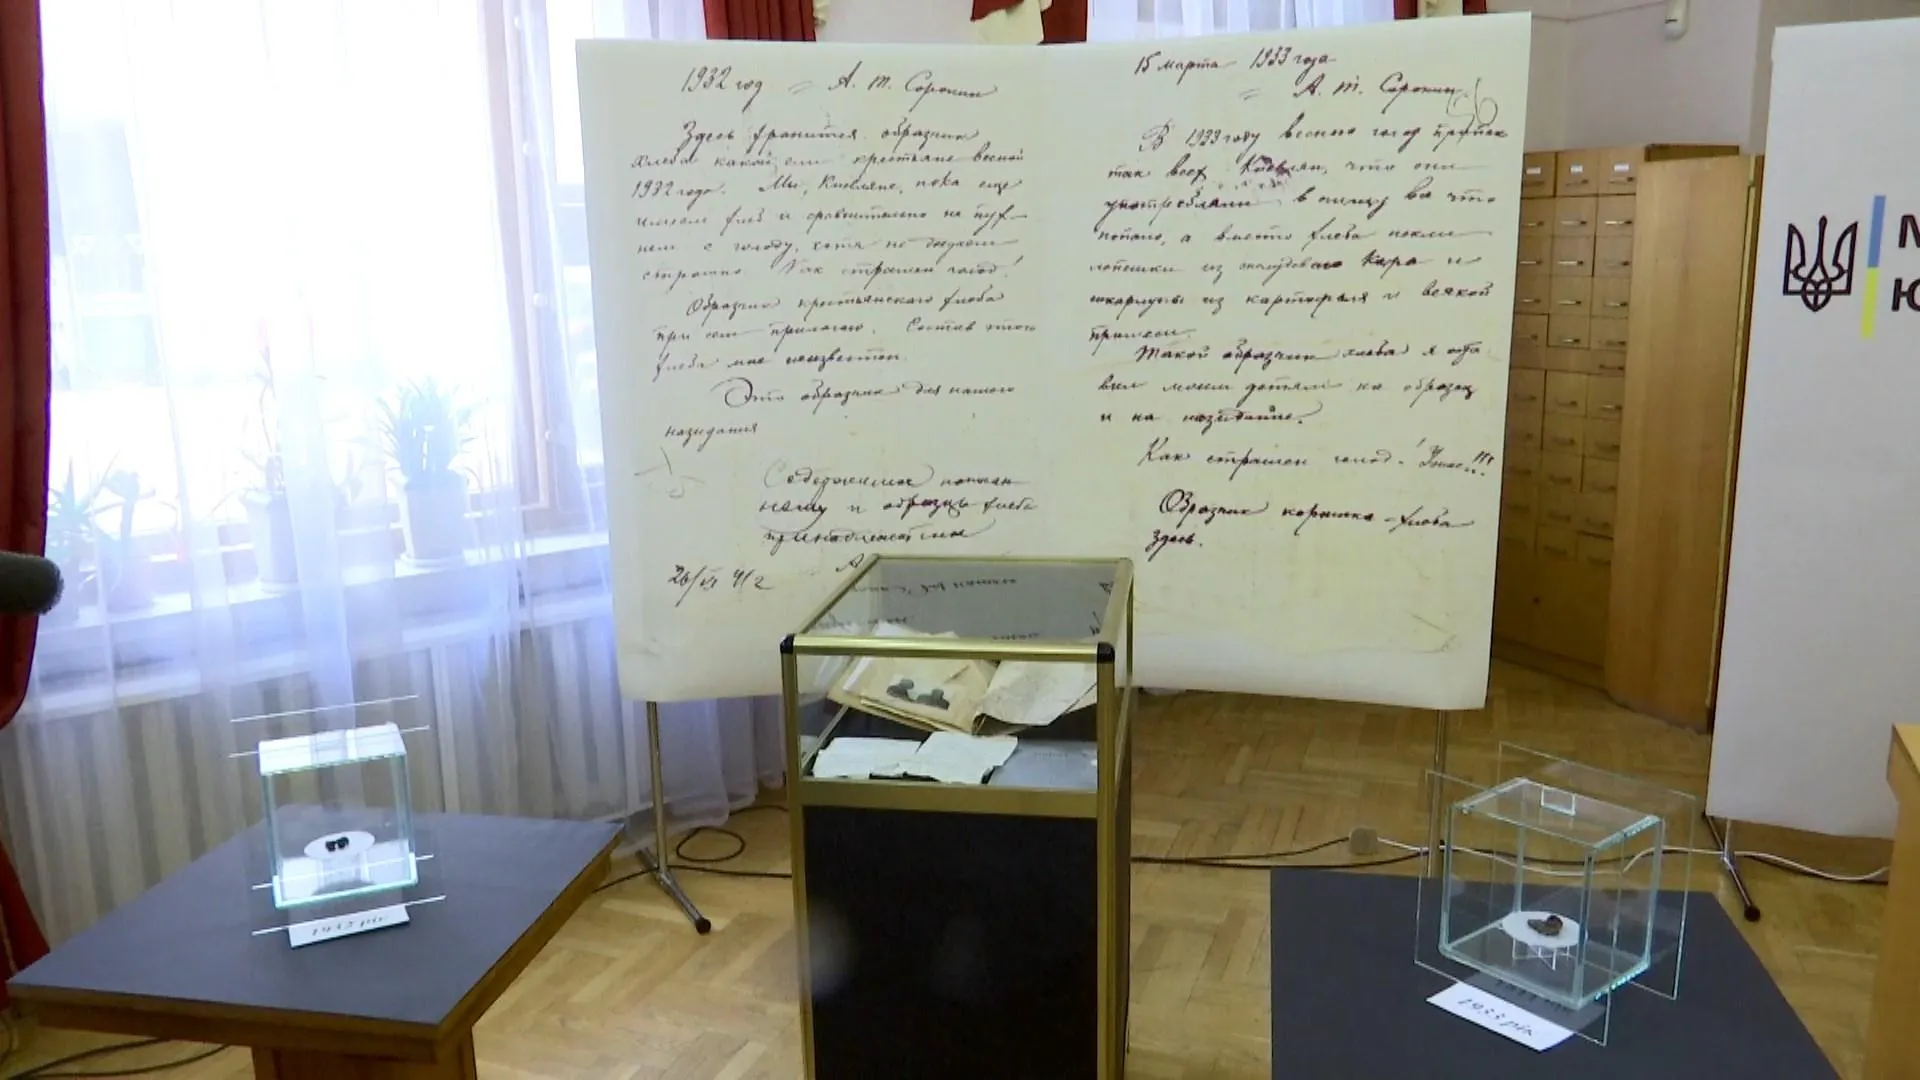 1932 год = А. Т. Сорокин
Здесь хранится образчик
хлеба какой ели крестьяне весной
1932 года. Мы, Киевляне, пока еще
имеем хлеб и сравнительно не пух-
нем с голоду, хотя не доедаем
страшно. Как страшен голод!
Образчик крестьянского хлеба
при сем прилагаю. Состав этого
хлеба мне неизвестен.
Это образчик для нашего
назидания
Содержимое
и образцы хлеба
26/VI 41 г
А
15 марта 1933 года
= А. Т. Сорокин
В 1933 году весною голод
так всех Киевлян, что они
употребляли в пищу все что
попало, а вместо хлеба пекли
лепешки из кара и
шкарлупы из картофеля и всякой
примеси.
Такой образчик хлеба я оста
вил моим детям на образец
и на назидание.
Как страшен голод! Ужас!!!
Образчик коржика-хлеба
здесь.
для нашего
1932 рік
1933 рік
М
Ю